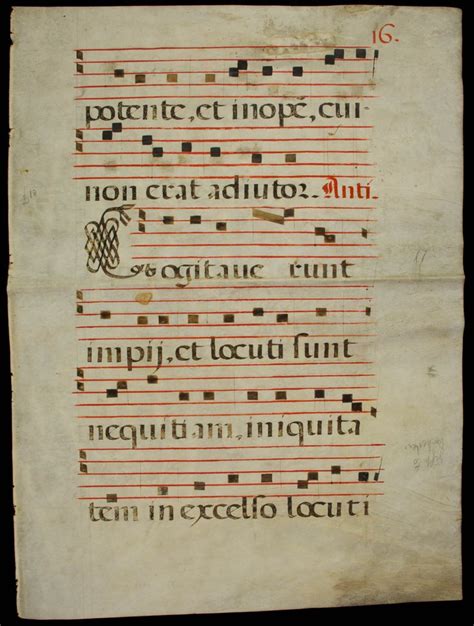 16.
potente, et inopē, cui-
non erat adiutor. Anti.
Cogitaue runt
impij, et locuti sunt
nequitiam, iniquita
tem in excelso locuti
17